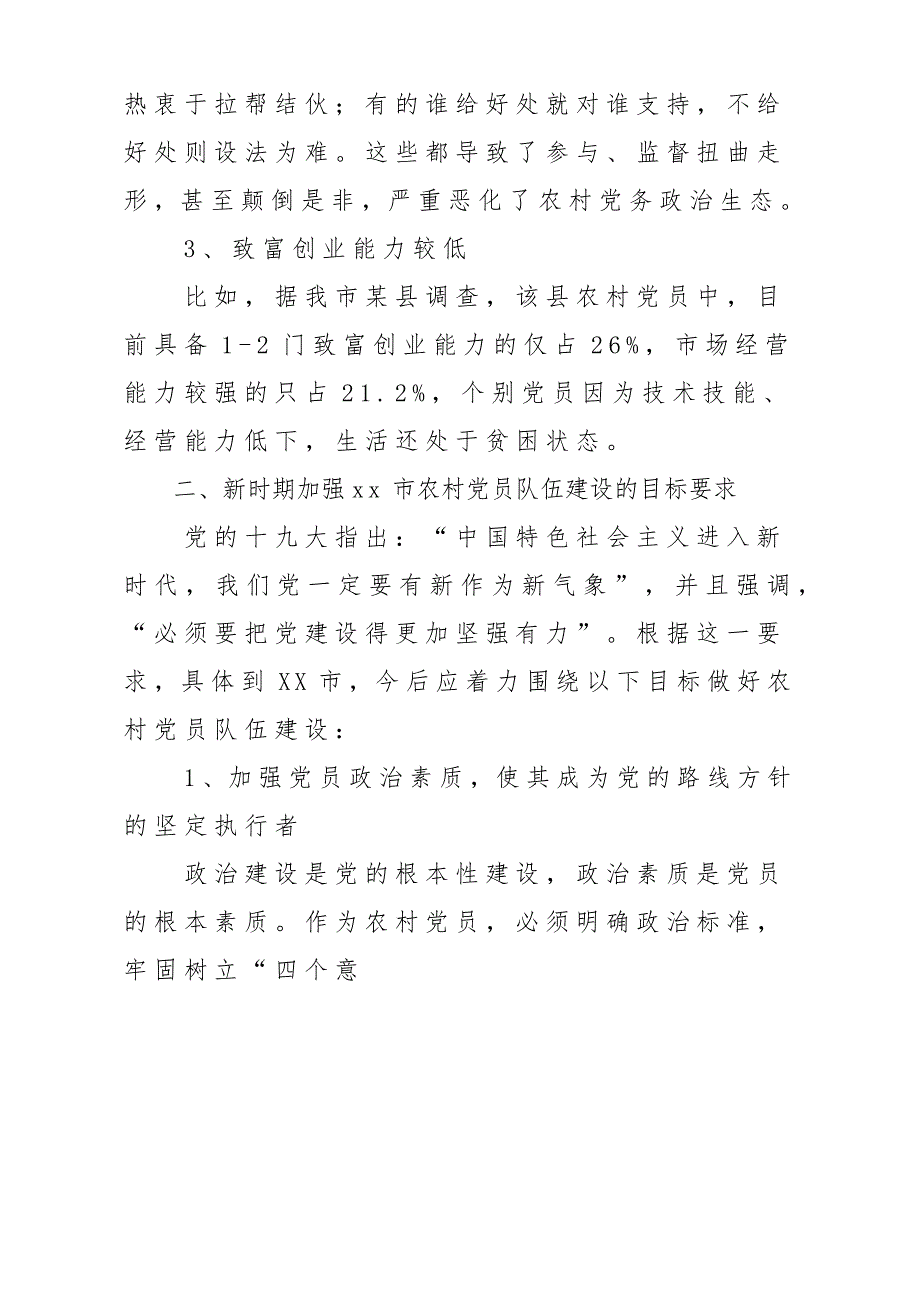 热衷于拉帮结伙；有的谁给好处就对谁支持，不给
好处则设法为难。这些都导致了参与、监督扭曲走
形，甚至颠倒是非，严重恶化了农村党务政治生态。
3、致富创业能力较低
比如，据我市某县调查，该县农村党员中，目
前具备1-2门致富创业能力的仅占26%，市场经营
能力较强的只占21.2%，个别党员因为技术技能、
经营能力低下，生活还处于贫困状态。
二、新时期加强xx市农村党员队伍建设的目标要求
党的十九大指出：“中国特色社会主义进入新
时代，我们党一定要有新作为新气象”，并且强调，
“必须要把党建设得更加坚强有力”。根据这一要
求，具体到XX市，今后应着力围绕以下目标做好农
村党员队伍建设：
1、加强党员政治素质，使其成为党的路线方针
的坚定执行者
政治建设是党的根本性建设，政治素质是党员
的根本素质。作为农村党员，必须明确政治标准，
牢固树立“四个意